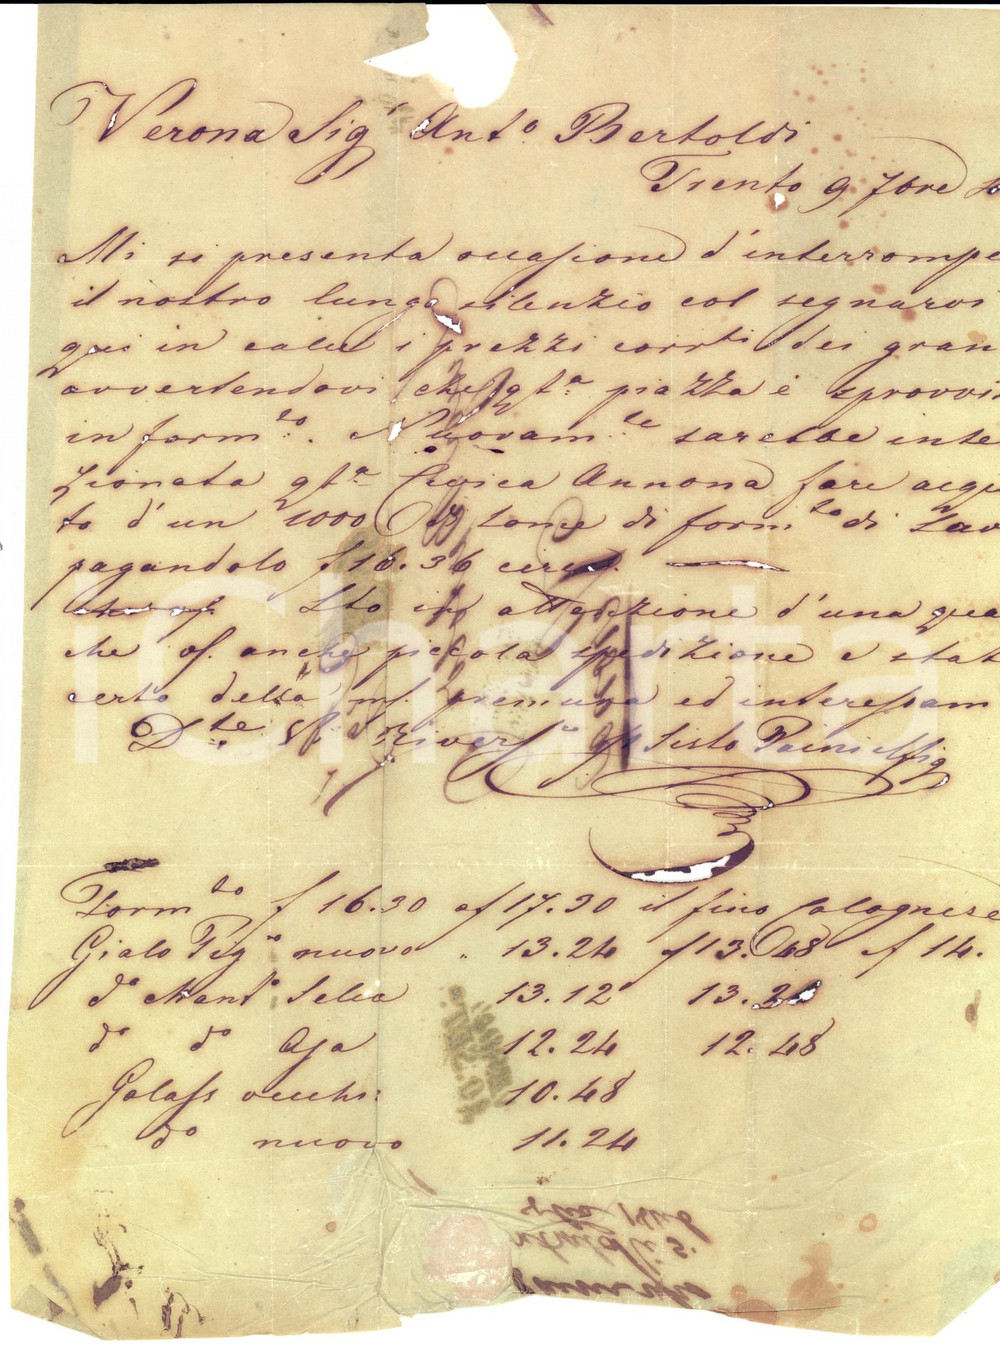 Verona Sigr Anto. Bertoldi
Trento 9 7bre
Mi si presenta occasione d'interrompe
il nostro lungo silenzio col segnarvi
qui in calce i prezzi corrti dei gran
avvertendovi che qta. piazza è sprovvi
in formto. Nuovamte sarebbe inte
zionata qta Civica Annona fare acqu
to d'un 1000 some di formto di
pagandolo f 16.36 circa.
Sto in attenzione d'una qua
che of. anche piccola spedizione e stat
certo della mf. premura ed interessam
Dte. Sisto
Formto f 16.30 af 17.30 il fino bolognese
Gialo Pigo nuovo " 13.24 f 13.48 af 14.
do Manto Selia 13.12 13.24
do do Aja 12.24 12.48
Galass vecchi: 10.48
do nuovo 11.24
iCharta